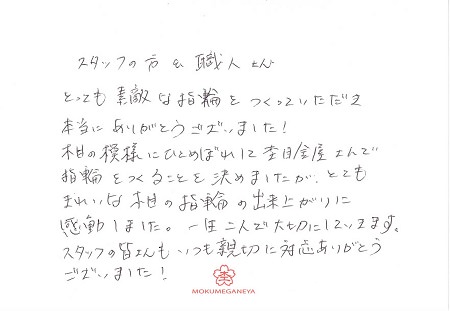 スタッフの方々 職人さん
とっても素敵な指輪をつくっていただき
本当にありがとうございました!
木目の模様にひとめぼれして杢目金屋さんで
指輪をつくることを決めましたが、とても
きれいな木目の指輪の出来上がりに
感動しました。一生二人で大切にしていきます。
スタッフの皆さんもいつも親切に対応ありがとう
ございました!
MOKUMEGANEYA